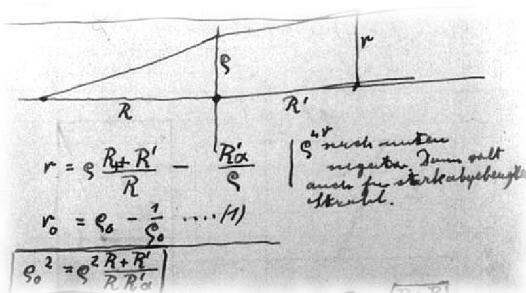 ρ
r
R
R'
r = ρ (R + R')/R − R'α/ρ
ρ u. r nach unten
negativ. Dann gilt
auch für stark abgebeugte
Strahl.
r₀ = ρ₀ − 1/ρ₀ ....(1)
ρ₀² = ρ² (R + R')/(R R'α)